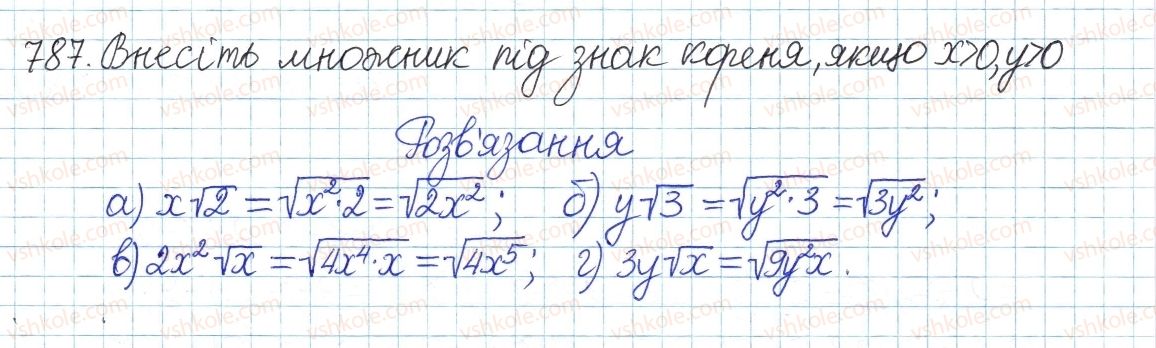 787. Внесіть множник під знак кореня, якщо x>0, y>0
Розв'язання
а) x√2 = √(x²·2) = √(2x²); б) y√3 = √(y²·3) = √(3y²);
в) 2x²√x = √(4x⁴·x) = √(4x⁵); г) 3y√x = √(9y²x).